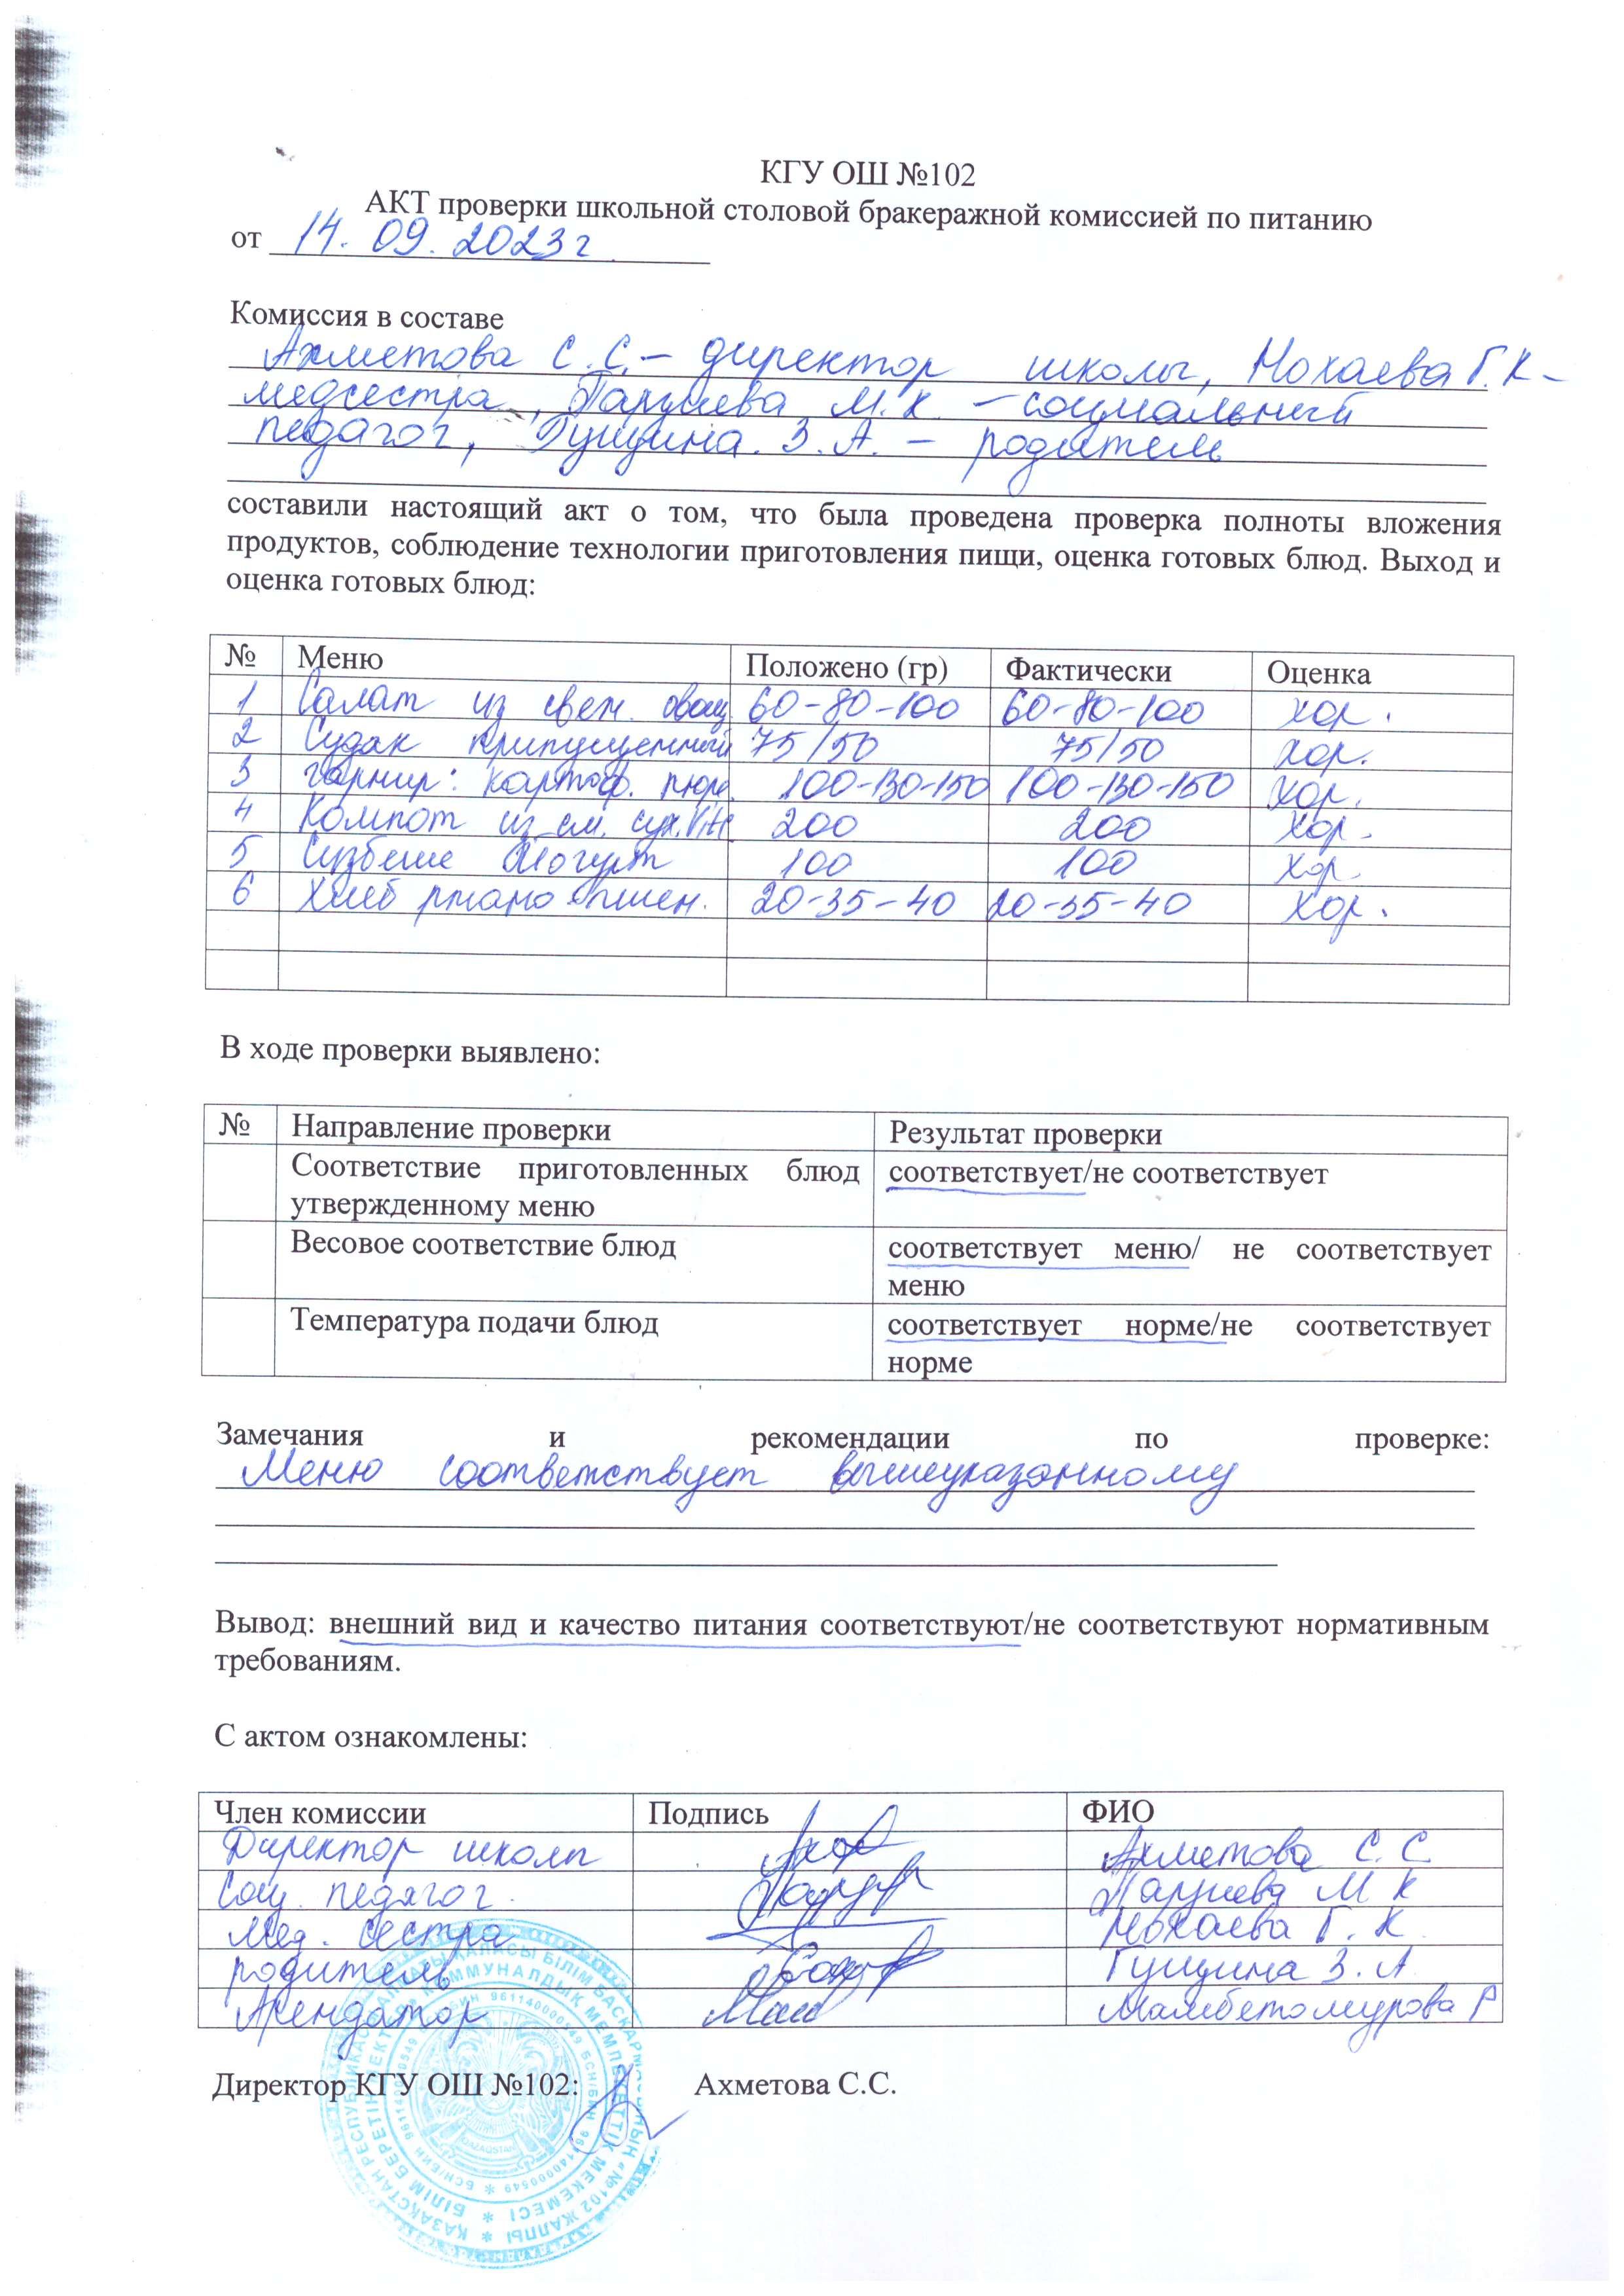 КГУ ОШ №102
АКТ проверки школьной столовой бракеражной комиссией по питанию
от 14. 09. 2023 г
Комиссия в составе
Ахметова С.С. – директор школы, Нохаева Г.К –
медсестра, М.К. – социальный
педагог, Гущина З.А. – родитель
составили настоящий акт о том, что была проведена проверка полноты вложения
продуктов, соблюдение технологии приготовления пищи, оценка готовых блюд. Выход и
оценка готовых блюд:
№ Меню Положено (гр) Фактически Оценка
1 Салат из свеж. овощ. 60-80-100 60-80-100 хор.
2 Судак припущенный 75/50 75/50 хор.
3 гарнир: картоф. пюре. 100-130-150 100-130-150 хор.
4 Компот из см. сух. 200 200 хор.
5 Сузбеше йогурт 100 100 хор.
6 Хлеб ржано-пшен. 20-35-40 20-35-40 хор.
В ходе проверки выявлено:
№ Направление проверки Результат проверки
Соответствие приготовленных блюд соответствует/не соответствует
утвержденному меню
Весовое соответствие блюд соответствует меню/ не соответствует
меню
Температура подачи блюд соответствует норме/не соответствует
норме
Замечания и рекомендации по проверке:
Меню соответствует вышеуказанному
Вывод: внешний вид и качество питания соответствуют/не соответствуют нормативным
требованиям.
С актом ознакомлены:
Член комиссии Подпись ФИО
Директор школы Ахметова С.С
Соц. педагог. М К
Мед. сестра Нохаева Г. К.
родитель Гущина З. А
Арендатор Мамбетомурова Р
Директор КГУ ОШ №102: Ахметова С.С.